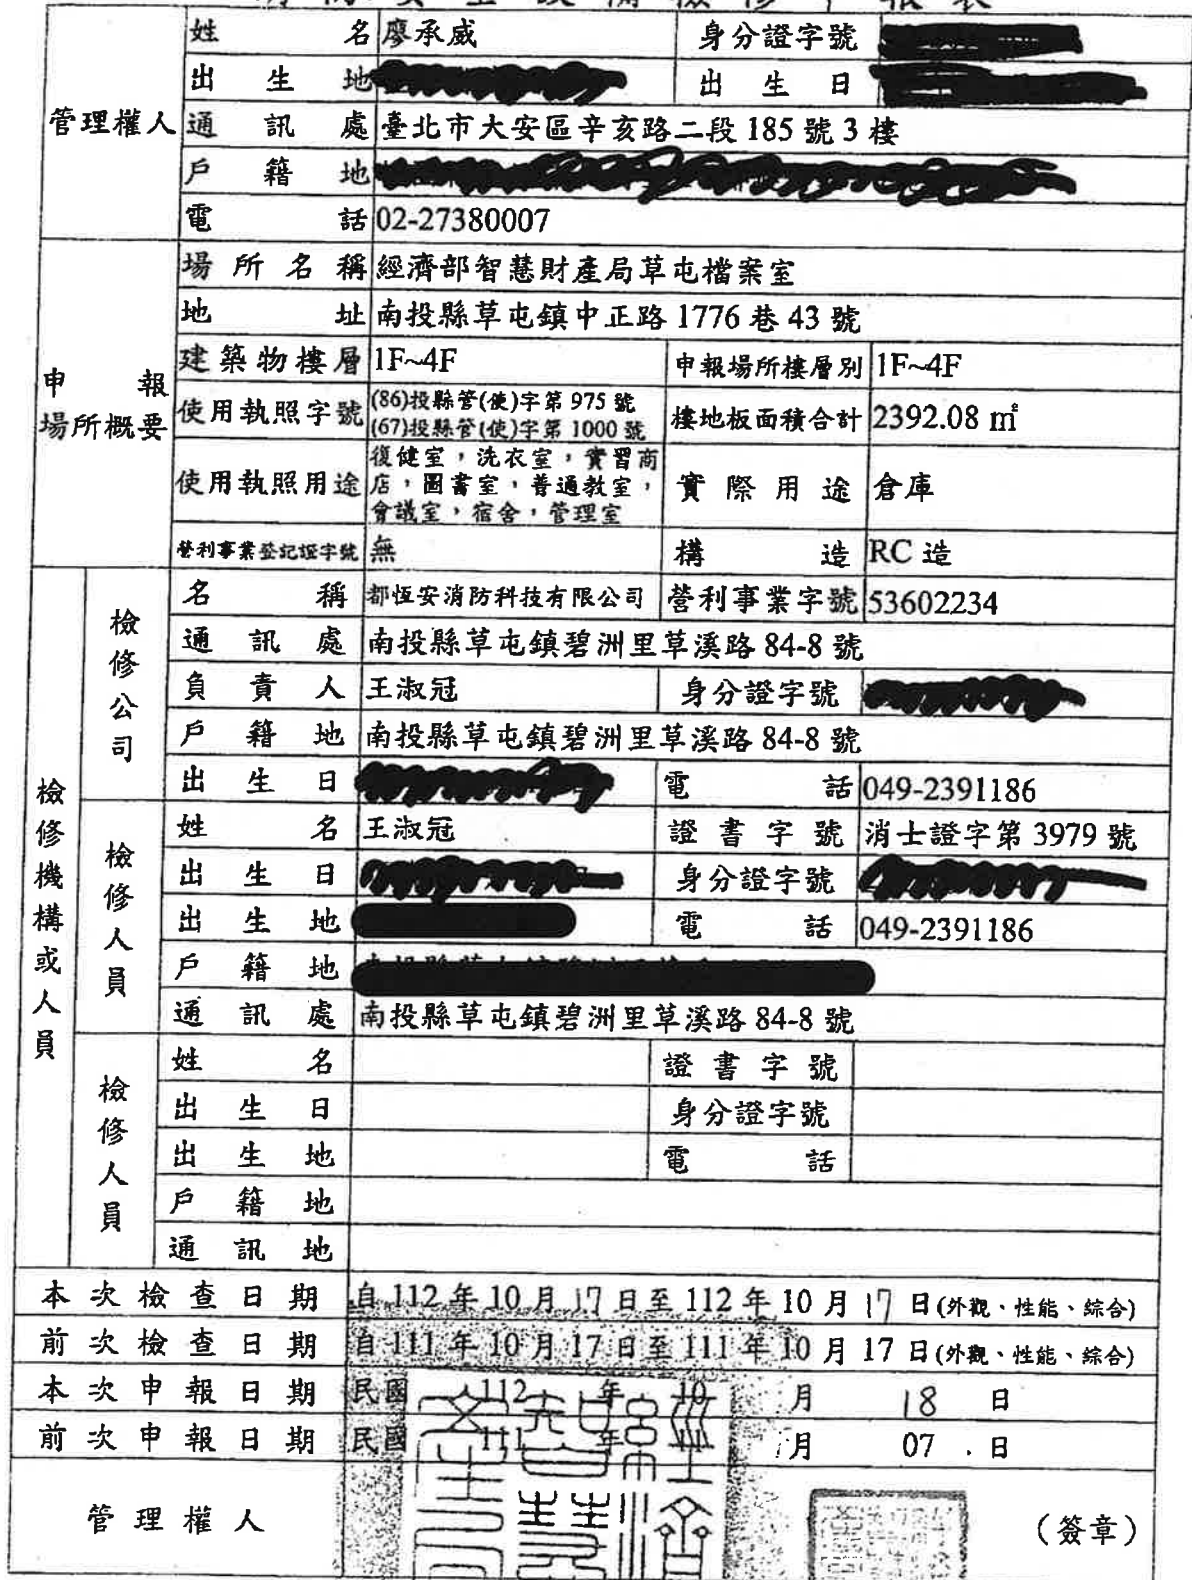 姓名 廖承威 身分證字號
出生地 出生日
管理權人 通訊處 臺北市大安區辛亥路二段 185 號 3 樓
戶籍地
電話 02-27380007
場所名稱 經濟部智慧財產局草屯檔案室
地址 南投縣草屯鎮中正路 1776 巷 43 號
建築物樓層 1F~4F 申報場所樓層別 1F~4F
申報場所概要 使用執照字號 (86)投縣管(使)字第 975 號
(67)投縣管(使)字第 1000 號 樓地板面積合計 2392.08 ㎡
使用執照用途 復健室，洗衣室，實習商
店，圖書室，普通教室，
會議室，宿舍，管理室 實際用途 倉庫
營利事業登記證字號 無 構造 RC 造
檢修機構或人員
檢修公司 名稱 都恆安消防科技有限公司 營利事業字號 53602234
通訊處 南投縣草屯鎮碧洲里草溪路 84-8 號
負責人 王淑冠 身分證字號
戶籍地 南投縣草屯鎮碧洲里草溪路 84-8 號
出生日 電話 049-2391186
檢修人員 姓名 王淑冠 證書字號 消士證字第 3979 號
出生日 身分證字號
出生地 電話 049-2391186
戶籍地
通訊處 南投縣草屯鎮碧洲里草溪路 84-8 號
檢修人員 姓名 證書字號
出生日 身分證字號
出生地 電話
戶籍地
通訊地
本次檢查日期 自 112 年 10 月 17 日至 112 年 10 月 17 日(外觀、性能、綜合)
前次檢查日期 自 111 年 10 月 17 日至 111 年 10 月 17 日(外觀、性能、綜合)
本次申報日期 民國 112 年 10 月 18 日
前次申報日期 民國 111 年 11 月 07 日
管理權人 (簽章)